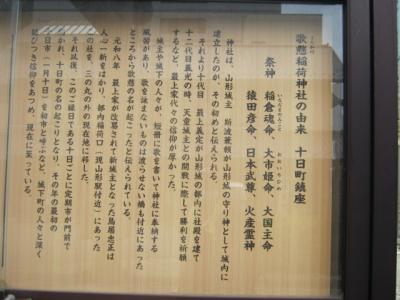 歌懸稲荷神社の由来 十日町鎮座
うたかけ
祭神 稲倉魂命、大市姫命、大国主命
猿田彦命、日本武尊、火産霊神
神社は、山形城主 斯波兼頼が山形城の守り神として城内に
建立したのが、その初めと伝えられる。
それより十代目 最上義定が山形城の郭内に社殿を建て
十二代目義光の時、天童城主との闘戦に際して勝利を祈願
するなど、最上家代々の信仰が厚かった。
城主や城下の人々が、短冊に歌を書いて神社に奉納する
風習があり、歌を詠まないものは渡らせない橋も付近にあった
ところから歌懸の名が起こったと伝えられている。
元和八年 最上家が改易されて新城主となった鳥居忠政は
人心一新をはかり、郭内稲荷口(現山形駅付近)にあった
の社を、三の丸の外の現在地に移した。
それ以後、このご縁日である十日ごとに定期市が門前で
かれ、十日町の名の起こりとなり、その年の最初の
日市(一月十日)を初市と呼ぶなど、城下町の人々と深く
びつき信仰をあつめ、現在に至っている。